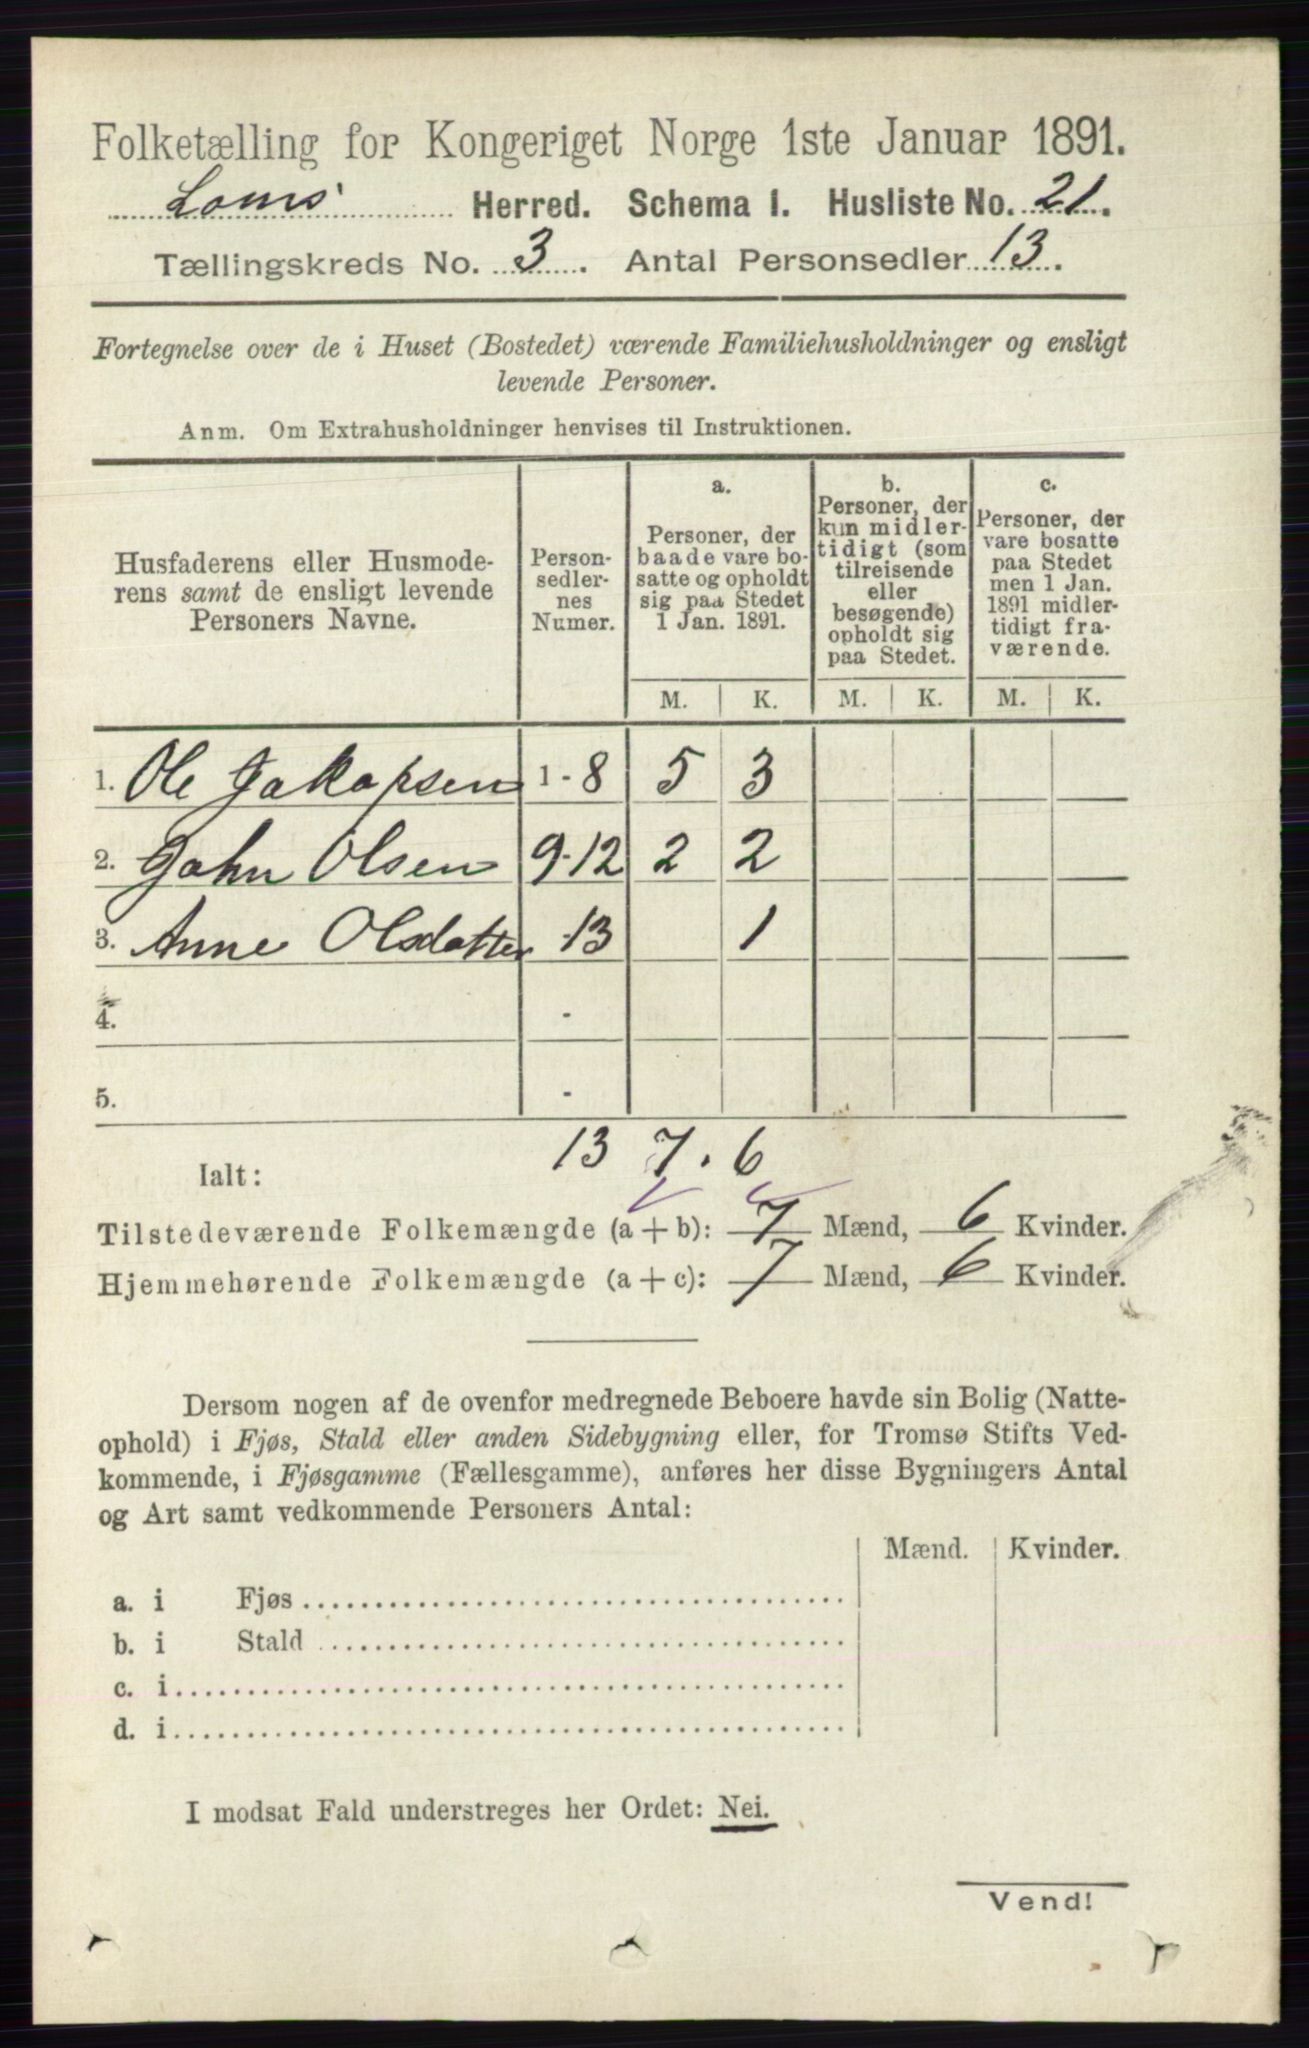 Folketælling for Kongeriget Norge 1ste Januar 1891.
Loms Herred. Schema I. Husliste No. 21.
Tællingskreds No. 3. Antal Personsedler 13.
Fortegnelse over de i Huset (Bostedet) værende Familiehusholdninger og ensligt
levende Personer.
Anm. Om Extrahusholdninger henvises til Instruktionen.
Husfaderens eller Husmode-
rens samt de ensligt levende
Personers Navne.
Person-
sedler-
nes
Numer.
a.
Personer, der
baade vare bo-
satte og opholdt
sig paa Stedet
1 Jan. 1891.
b.
Personer, der
kun midler-
tidigt (som
tilreisende
eller
besøgende)
opholdt sig
paa Stedet.
c.
Personer, der
vare bosatte
paa Stedet
men 1 Jan.
1891 midler-
tidigt fra-
værende.
M. K. M. K. M. K.
1. Ole Jakopsen 1-8 5 3
2. John Olsen 9-12 2 2
3. Anne Olsdatter -13 1
4. -
5. -
13 7. 6
Ialt:
Tilstedeværende Folkemængde (a + b): 7 Mænd, 6 Kvinder.
Hjemmehørende Folkemængde (a + c): 7 Mænd, 6 Kvinder.
Dersom nogen af de ovenfor medregnede Beboere havde sin Bolig (Natte-
ophold) i Fjøs, Stald eller anden Sidebygning eller, for Tromsø Stifts Ved-
kommende, i Fjøsgamme (Fællesgamme), anføres her disse Bygningers Antal
og Art samt vedkommende Personers Antal:
Mænd. Kvinder.
a. i Fjøs
b. i Stald
c. i
d. i
I modsat Fald understreges her Ordet: Nei.
Vend!